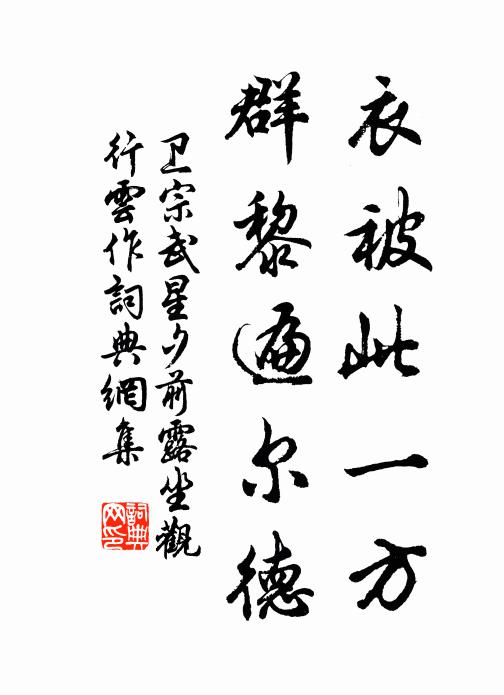 衣被此一方
群黎遍尔德
卫宗武星夕前露坐觀
行雲作詞典網集
詞典
网印